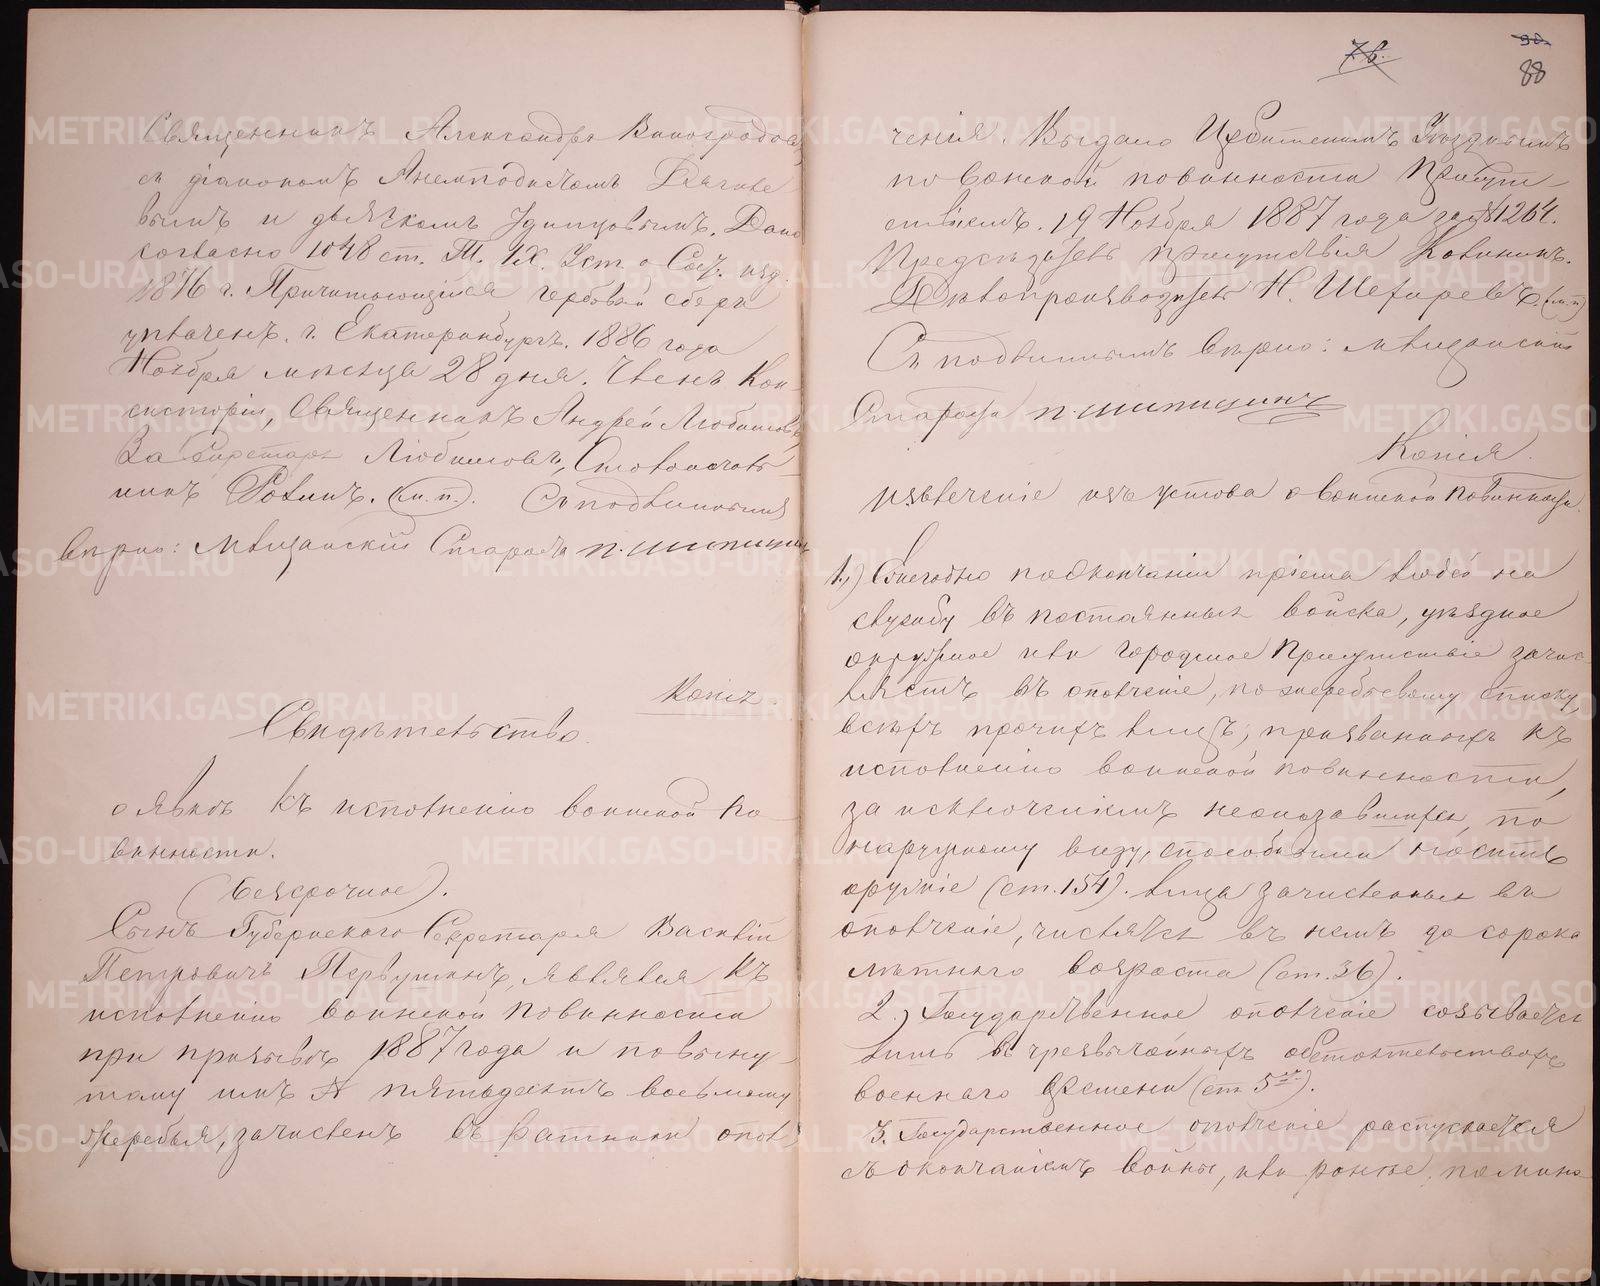 Священникъ Александръ Виноградовъ
съ діакономъ Анемподистомъ
вымъ и дьячкомъ Удинцовымъ. Дано
согласно 1048 ст. Т. IX. Уст. о Сос. изд.
1876 г. Причитающійся гербовый сборъ
уплаченъ. г. Екатеринбургъ. 1886 года
Ноября мѣсяца 28 дня. Членъ Кон-
систоріи, Священникъ Андрей Любимовъ
За Секретаря Любимовъ, Столоначаль
никъ (м. п.). Съ подлиннымъ
вѣрно: Мѣщанскій Староста П. Шипицинъ
Копія.
Свидѣтельство
о явкѣ къ исполненію воинской по-
винности.
(Безсрочное).
Сынъ Губернскаго Секретаря Василій
Петровичъ Первушинъ, являлся къ
исполненію воинской повинности
при призывѣ 1887 года и по выну-
тому имъ № пятьдесятъ восьмому
жеребья, зачисленъ въ ратники опол
7 в.
90.
88
ченія. Выдано Ирбитскимъ Уѣзднымъ
по воинской повинности Присут-
ствіемъ. 19 Ноября 1887 года за № 1264.
Предсѣдатель присутствія
Дѣлопроизводитель Н. Шефиревъ. (м. п.)
Съ подлиннымъ вѣрно: Мѣщанскій
Староста П. Шипицинъ
Копія.
Извлеченіе изъ устава о воинской повинности.
1.) Ежегодно по окончаніи пріема людей на
службу въ постоянныя войска, уѣздное
окружное или городское Присутствіе зачис-
ляетъ въ ополченіе, по жеребьевому списку,
всѣхъ прочихъ лицъ, призванныхъ къ
исполненію воинской повинности,
за исключеніемъ неоказавшихся, по
наружному виду, способными носить
оружіе (ст. 154). Лица зачисленныя въ
ополченіе, числятся въ немъ до сорока
лѣтняго возраста (ст. 36).
2.) Государственное ополченіе созывается
лишь въ чрезвычайныхъ обстоятельствахъ
военнаго времени (ст. 5я).
3. Государственное ополченіе распускается
съ окончаніемъ войны, или ранѣе, по мино
METRIKI.GASO-URAL.RU